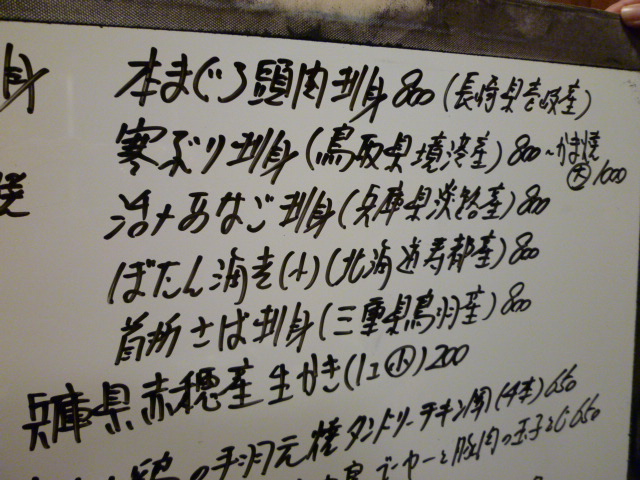 身 本まぐろ頭肉刺身 800 (長崎県壱岐産)
寒ぶり刺身 (鳥取県境港産) 800 ~ かま焼
焼 大 1000
活〆あなご刺身 (兵庫県淡路産) 800
ぼたん海老 (1ヶ) (北海道寿都産) 800
首折さば刺身 (三重県鳥羽産) 800
兵庫県赤穂産 生かき (1コ 小) 200
鶏の手羽元焼タンドリーチキン風 (4本) 650
ゴーヤーと豚肉の玉子とじ 650